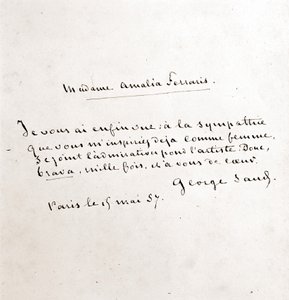 Madame Amalia Ferraris.
Je vous ai enfin vue; à la sympathie
que vous m'inspiriez déja comme femme,
se joint l'admiration pour l'artiste. Donc,
brava, mille fois, et à vous de cœur.
George Sand.
Paris le 15 mai 57.